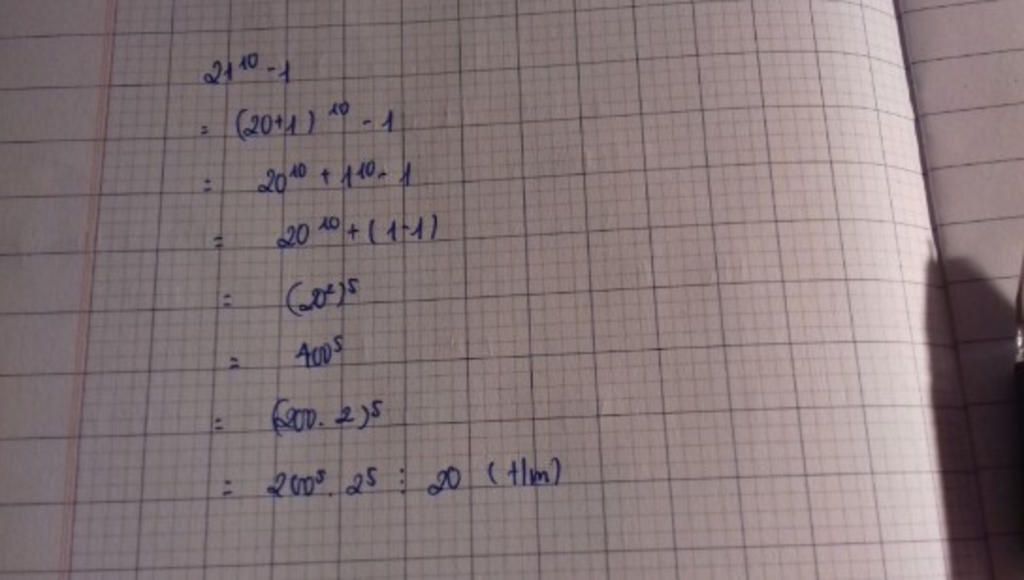 21¹⁰ - 1
= (20+1)¹⁰ - 1
= 20¹⁰ + 1¹⁰ - 1
= 20¹⁰ + (1-1)
= (20²)⁵
= 400⁵
= (200. 2)⁵
= 200⁵. 2⁵ ⋮ 20 (t/m)